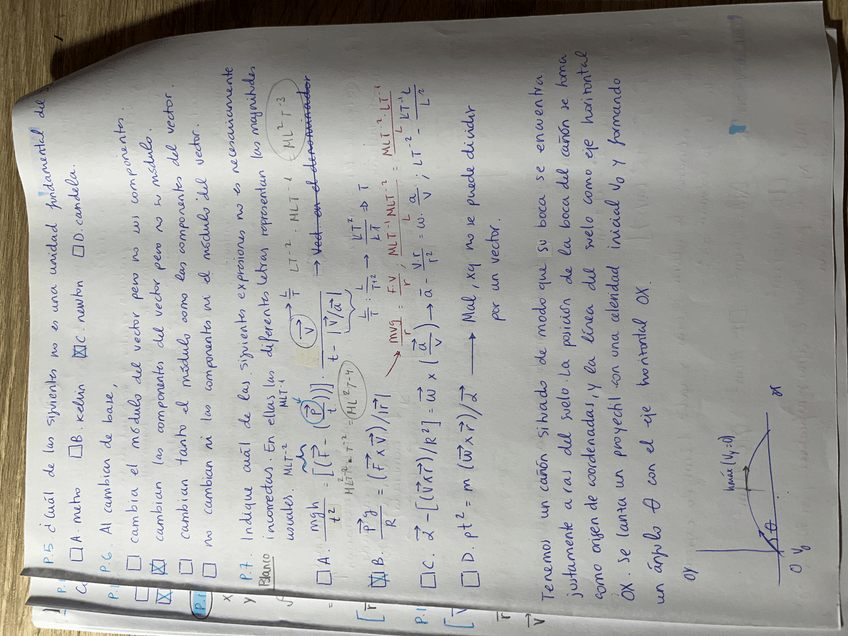 P.5 ¿Cuál de las siguientes no es una unidad fundamental de
□ A. metro □ B. Kelvin ☒ C. newton □ D. candela.
P.6. Al cambiar de base,
□ cambia el módulo del vector pero no sus componentes.
☒ cambian las componentes del vector pero no su módulo.
□ cambian tanto el módulo como las componentes del vector.
□ no cambian ni las componentes ni el módulo del vector.
P.7. Indique cuál de las siguientes expresiones no es necesariamente
Blanco incorrectas. En ellas las diferentes letras representan las magnitudes
usuales. MLT⁻² MLT⁻¹ LT⁻² · MLT⁻¹ ML²T⁻³
□ A. mgh/t² = [(F⃗ - (P⃗/t))] · v⃗ / t - |v⃗/a⃗| → Vect en el denominador
ML²T⁻⁴
L/T : L/T² → LT²/LT → T
☒ B. P⃗g/R = (F⃗ × v⃗)/|r⃗|
→ mvg/r = F·v/r ; MLT⁻¹ MLT⁻²/L = MLT⁻² · LT⁻¹/L
□ C. α⃗ - [(v⃗ × r⃗)/R²] = ω⃗ × (a⃗/v⃗) → a⃗ - v·r/r² = ω · a/v ; LT⁻² - LT⁻¹L/L²
□ D. pt² = m (ω⃗ × r⃗)/α⃗ → Mal, xq no se puede dividir
por un vector.
Tenemos un cañón situado de modo que su boca se encuentra
justamente a ras del suelo. La posición de la boca del cañón se toma
como origen de coordenadas, y la línea del suelo como eje horizontal
OX. Se lanza un proyectil con una celeridad inicial V₀ y formando
un ángulo θ con el eje horizontal OX.
OY
hmáx (Vy=0)
θ
O V₀